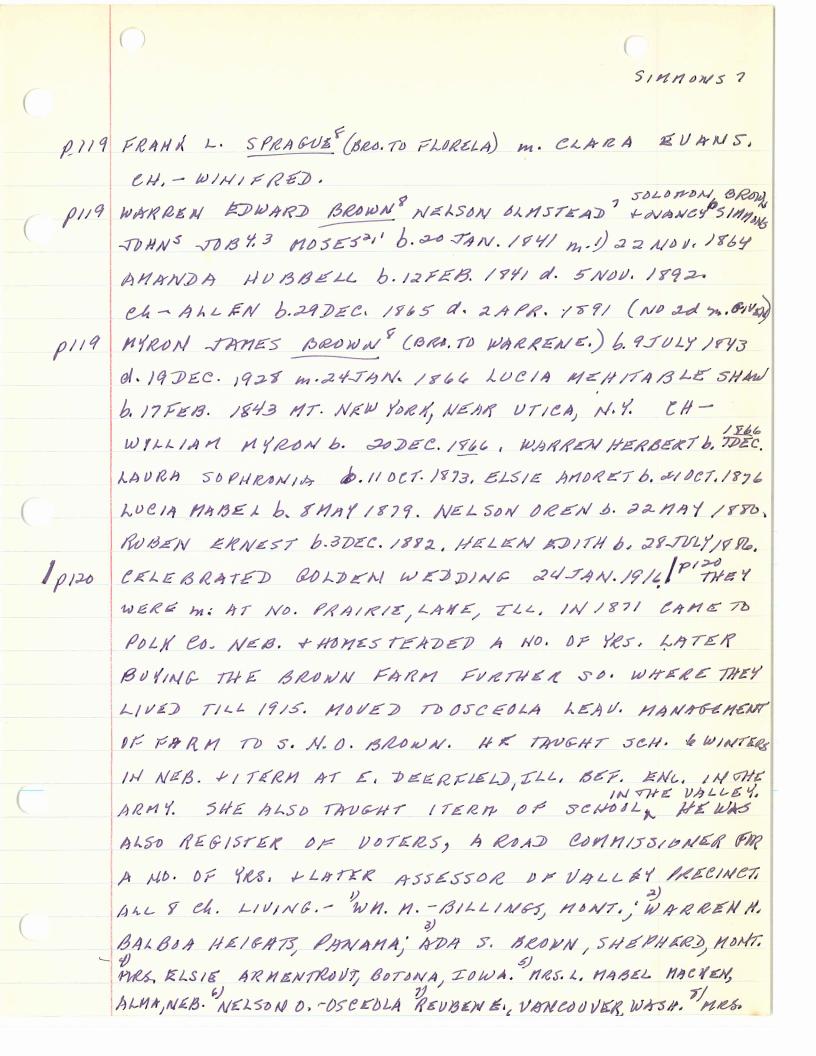 SIMMONS 7
p.119 FRANK L. SPRAGUE⁸ (BRO. TO FLORELA) m. CLARA EVANS.
CH. – WINIFRED.
p119 WARREN EDWARD BROWN⁸ NELSON OLMSTEAD⁷ SOLOMON BROWN + NANCY⁶ SIMMONS
JOHN⁵ JOB⁴,³ MOSES²,¹ b. 20 JAN. 1841 m. 1) 22 NOV. 1864
AMANDA HUBBELL b. 12 FEB. 1841 d. 5 NOV. 1892.
Ch – ALLEN b. 29 DEC. 1865 d. 2 APR. 1891 (NO 2d m. GIVEN)
p119 MYRON JAMES BROWN⁸ (BRO. TO WARREN E.) b. 9 JULY 1843
d. 19 DEC. 1928 m. 24 JAN. 1866 LUCIA MEHITABLE SHAW
b. 17 FEB. 1843 MT. NEW YORK, NEAR UTICA, N.Y. CH –
WILLIAM MYRON b. 20 DEC. 1866. WARREN HERBERT b. 1866 DEC.
LAURA SOPHRONIA b. 11 OCT. 1873. ELSIE AMORET b. 21 OCT. 1876
LUCIA MABEL b. 8 MAY 1879. NELSON OREN b. 22 MAY 1880.
RUBEN ERNEST b. 3 DEC. 1882. HELEN EDITH b. 28 JULY 1886.
/p120 CELEBRATED GOLDEN WEDDING 24 JAN. 1916 /p120 THEY
WERE m. AT NO. PRAIRIE, LAKE, ILL. IN 1871 CAME TO
POLK CO. NEB. + HOMESTEADED A NO. OF YRS. LATER
BUYING THE BROWN FARM FURTHER SO. WHERE THEY
LIVED TILL 1915. MOVED TO OSCEOLA LEAV. MANAGEMENT
OF FARM TO S. N. O. BROWN. HE TAUGHT SCH. 6 WINTERS
IN NEB. + 1 TERM AT E. DEERFIELD, ILL. BEF. ENL. IN THE
ARMY. SHE ALSO TAUGHT 1 TERM OF SCHOOL IN THE VALLEY. HE WAS
ALSO REGISTER OF VOTERS, A ROAD COMMISSIONER FOR
A NO. OF YRS. + LATER ASSESSOR OF VALLEY PRECINCT.
ALL 8 Ch. LIVING. – 1) WM. M. – BILLINGS, MONT.; 2) WARREN H.
BALBOA HEIGATS, PANAMA; 3) ADA S. BROWN, SHEPHERD, MONT.
4) MRS. ELSIE ARMENTROUT, BOTONA, IOWA. 5) MRS. L. MABEL MACKEN,
ALMA, NEB. 6) NELSON O. – OSCEOLA 7) REUBEN E., VANCOUVER, WASH. 8) MRS.